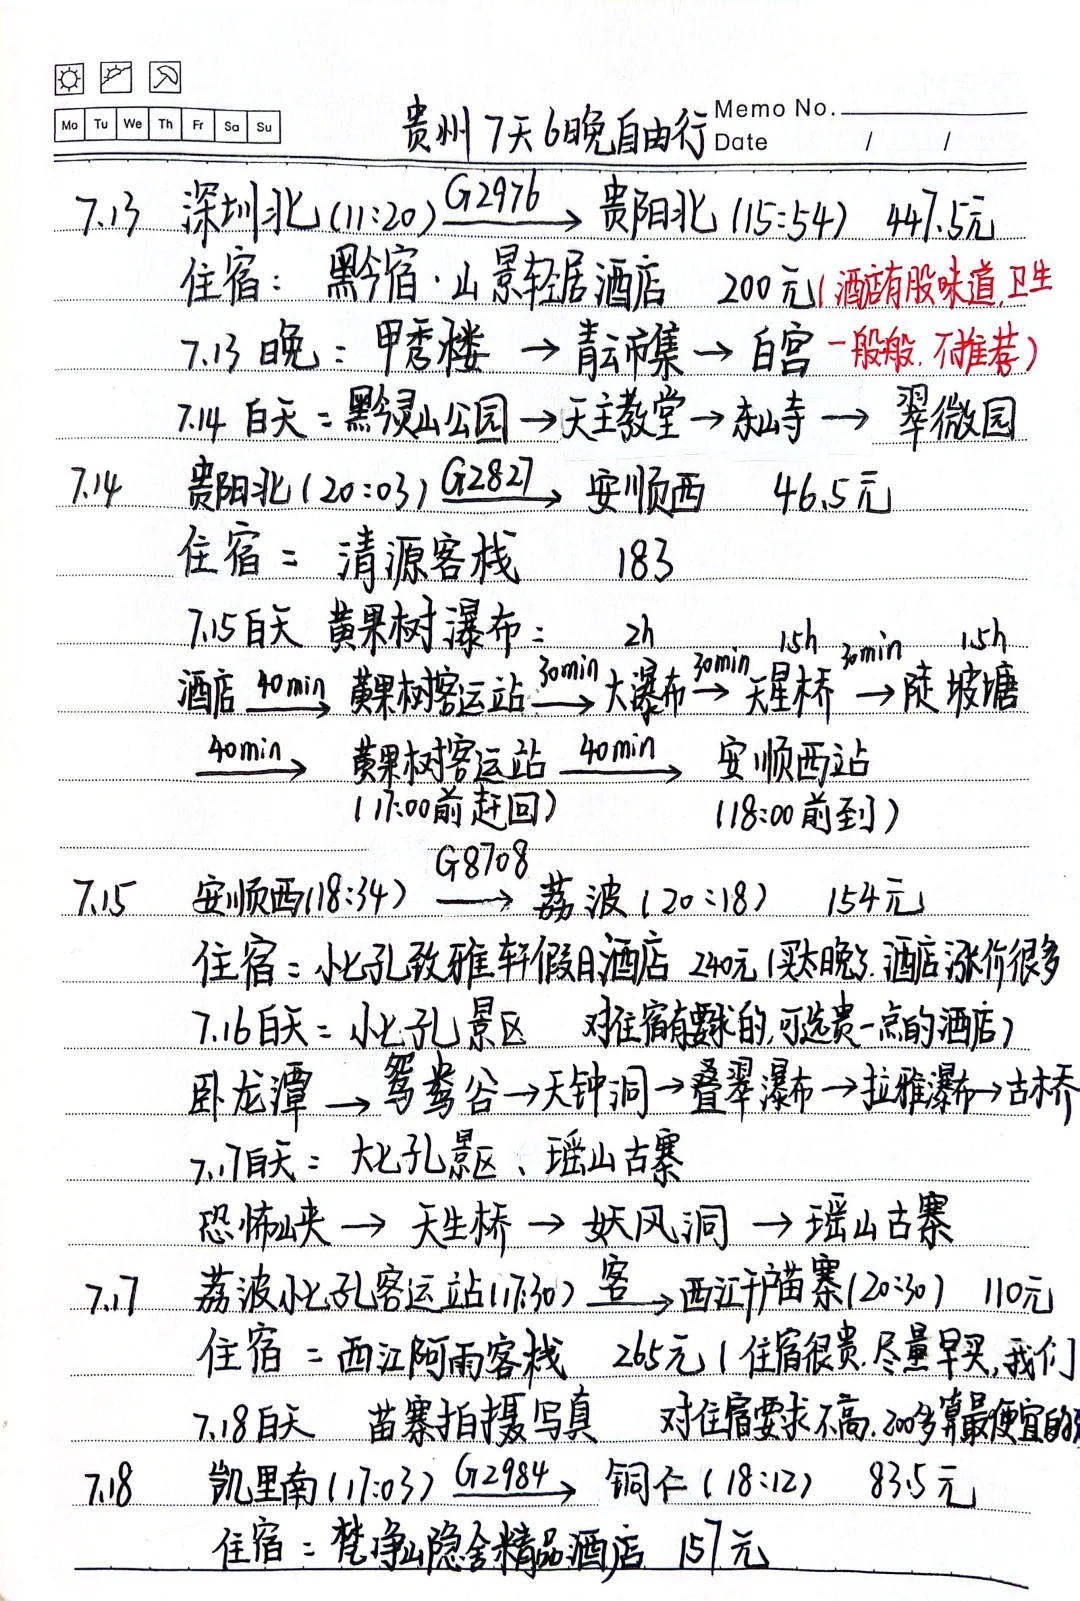 Mo Tu We Th Fr Sa Su
Memo No.
贵州7天6晚自由行
Date / /
7.13 深圳北(11:20) G2976 → 贵阳北(15:54) 447.5元
住宿: 黔宿·山景轻居酒店 200元(酒店有股味道,卫生
7.13晚: 甲秀楼 → 青云市集 → 白宫 一般般,不推荐)
7.14白天: 黔灵山公园 → 天主教堂 → 东山寺 → 翠微园
7.14 贵阳北(20:03) G2827 → 安顺西 46.5元
住宿: 清源客栈 183
7.15白天 黄果树瀑布: 2h 1.5h 1.5h
酒店 40min → 黄果树客运站 30min → 大瀑布 30min → 天星桥 30min → 陡坡塘
40min → 黄果树客运站 40min → 安顺西站
(17:00前赶回) (18:00前到)
7.15 安顺西(18:34) G8708 → 荔波(20:18) 154元
住宿: 小七孔致雅轩假日酒店 240元(买太晚了,酒店涨价很多
7.16白天: 小七孔景区 对住宿有要求的,可选贵一点的酒店)
卧龙潭 → 鸳鸯谷 → 天钟洞 → 叠翠瀑布 → 拉雅瀑布 → 古桥
7.17白天: 大七孔景区、瑶山古寨
恐怖峡 → 天生桥 → 妖风洞 → 瑶山古寨
7.17 荔波小七孔客运站(17:30) 客 → 西江千户苗寨(20:30) 110元
住宿: 西江阿雨客栈 265元(住宿很贵,尽量早买,我们
7.18白天 苗寨拍摄写真 对住宿要求不高,200多算最便宜的
7.18 凯里南(17:03) G2984 → 铜仁(18:12) 83.5元
住宿: 梵净山隐舍精品酒店 157元